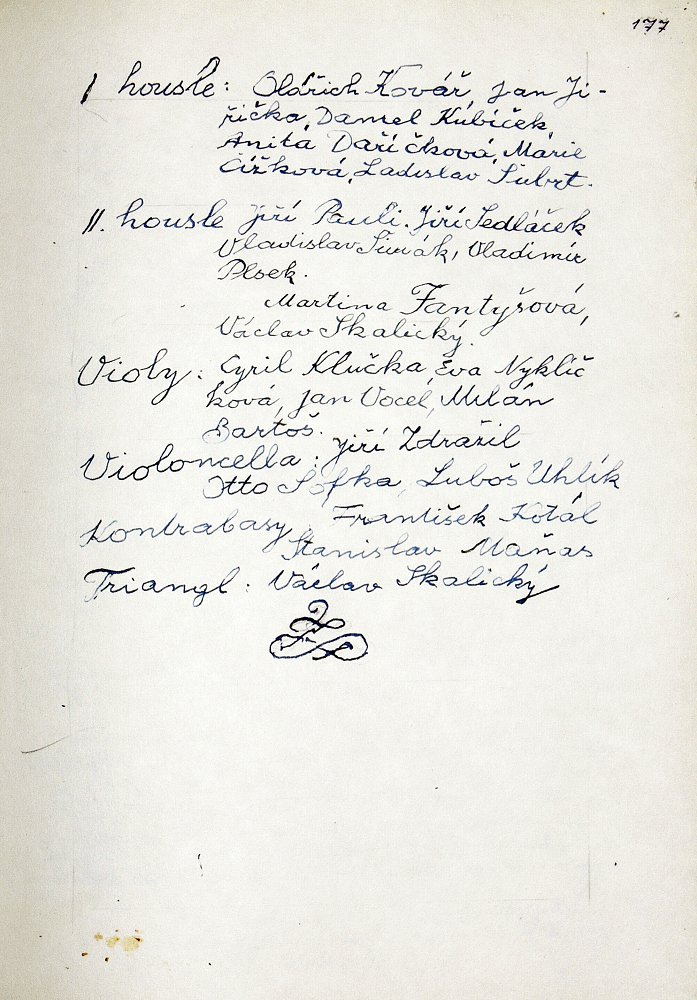 177
I housle: Oldřich Kovář, Jan Ji-
řička, Daniel Kubíček,
Anita Daříčková, Marie
Čížková, Ladislav Šubrt.
II. housle Jiří Pauli. Jiří Sedláček
Vladislav Šimák, Vladimír
Plsek.
Martina Fantyšová,
Václav Skalický.
Violy: Cyril Klučka, Eva Nyklíč
ková, Jan Vocel, Milán
Bartoš.
Violoncella: Jiří Zdražil
Otto Sofka, Luboš Uhlík
Kontrabasy: František Kotál
Stanislav Maňas
Triangl: Václav Skalický